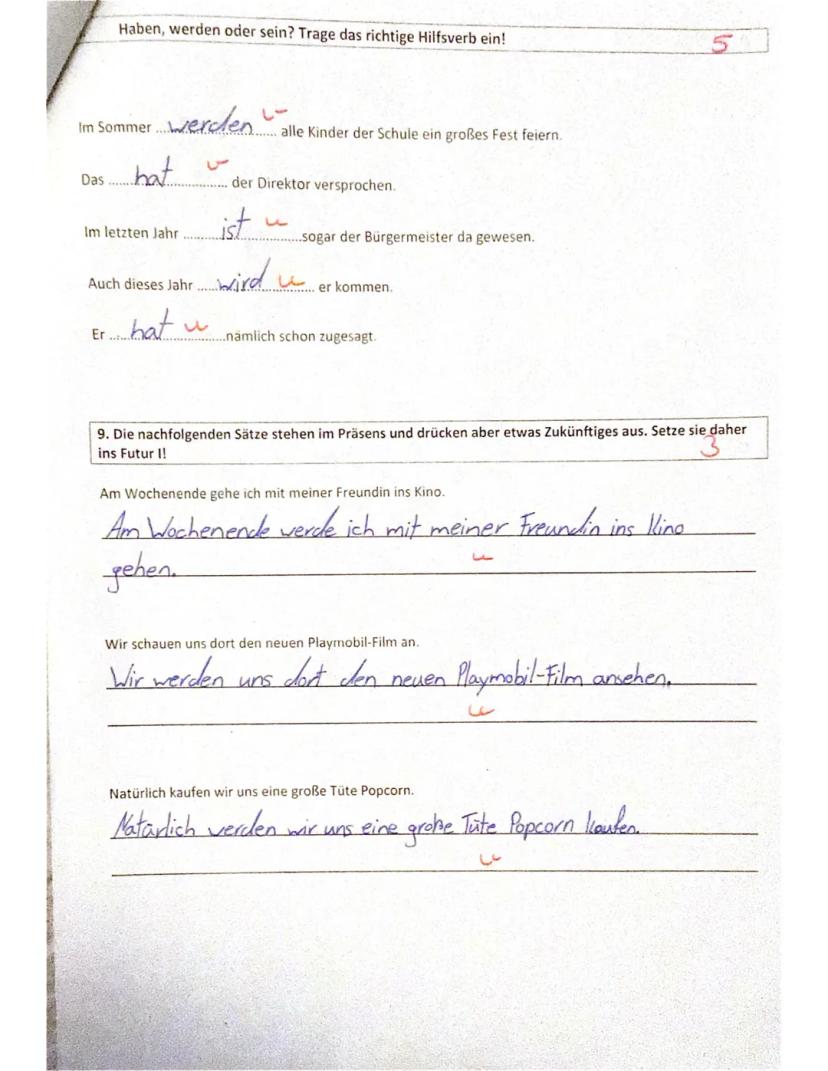 Haben, werden oder sein? Trage das richtige Hilfsverb ein!
5
Im Sommer ...werden...... alle Kinder der Schule ein großes Fest feiern.
Das ......hat............... der Direktor versprochen.
Im letzten Jahr .........ist..............sogar der Bürgermeister da gewesen.
Auch dieses Jahr .....wird............ er kommen.
Er .....hat................nämlich schon zugesagt.
9. Die nachfolgenden Sätze stehen im Präsens und drücken aber etwas Zukünftiges aus. Setze sie daher
ins Futur I!
3
Am Wochenende gehe ich mit meiner Freundin ins Kino.
Am Wochenende werde ich mit meiner Freundin ins Kino
gehen.
Wir schauen uns dort den neuen Playmobil-Film an.
Wir werden uns dort den neuen Playmobil-Film ansehen.
Natürlich kaufen wir uns eine große Tüte Popcorn.
Natürlich werden wir uns eine große Tüte Popcorn kaufen.